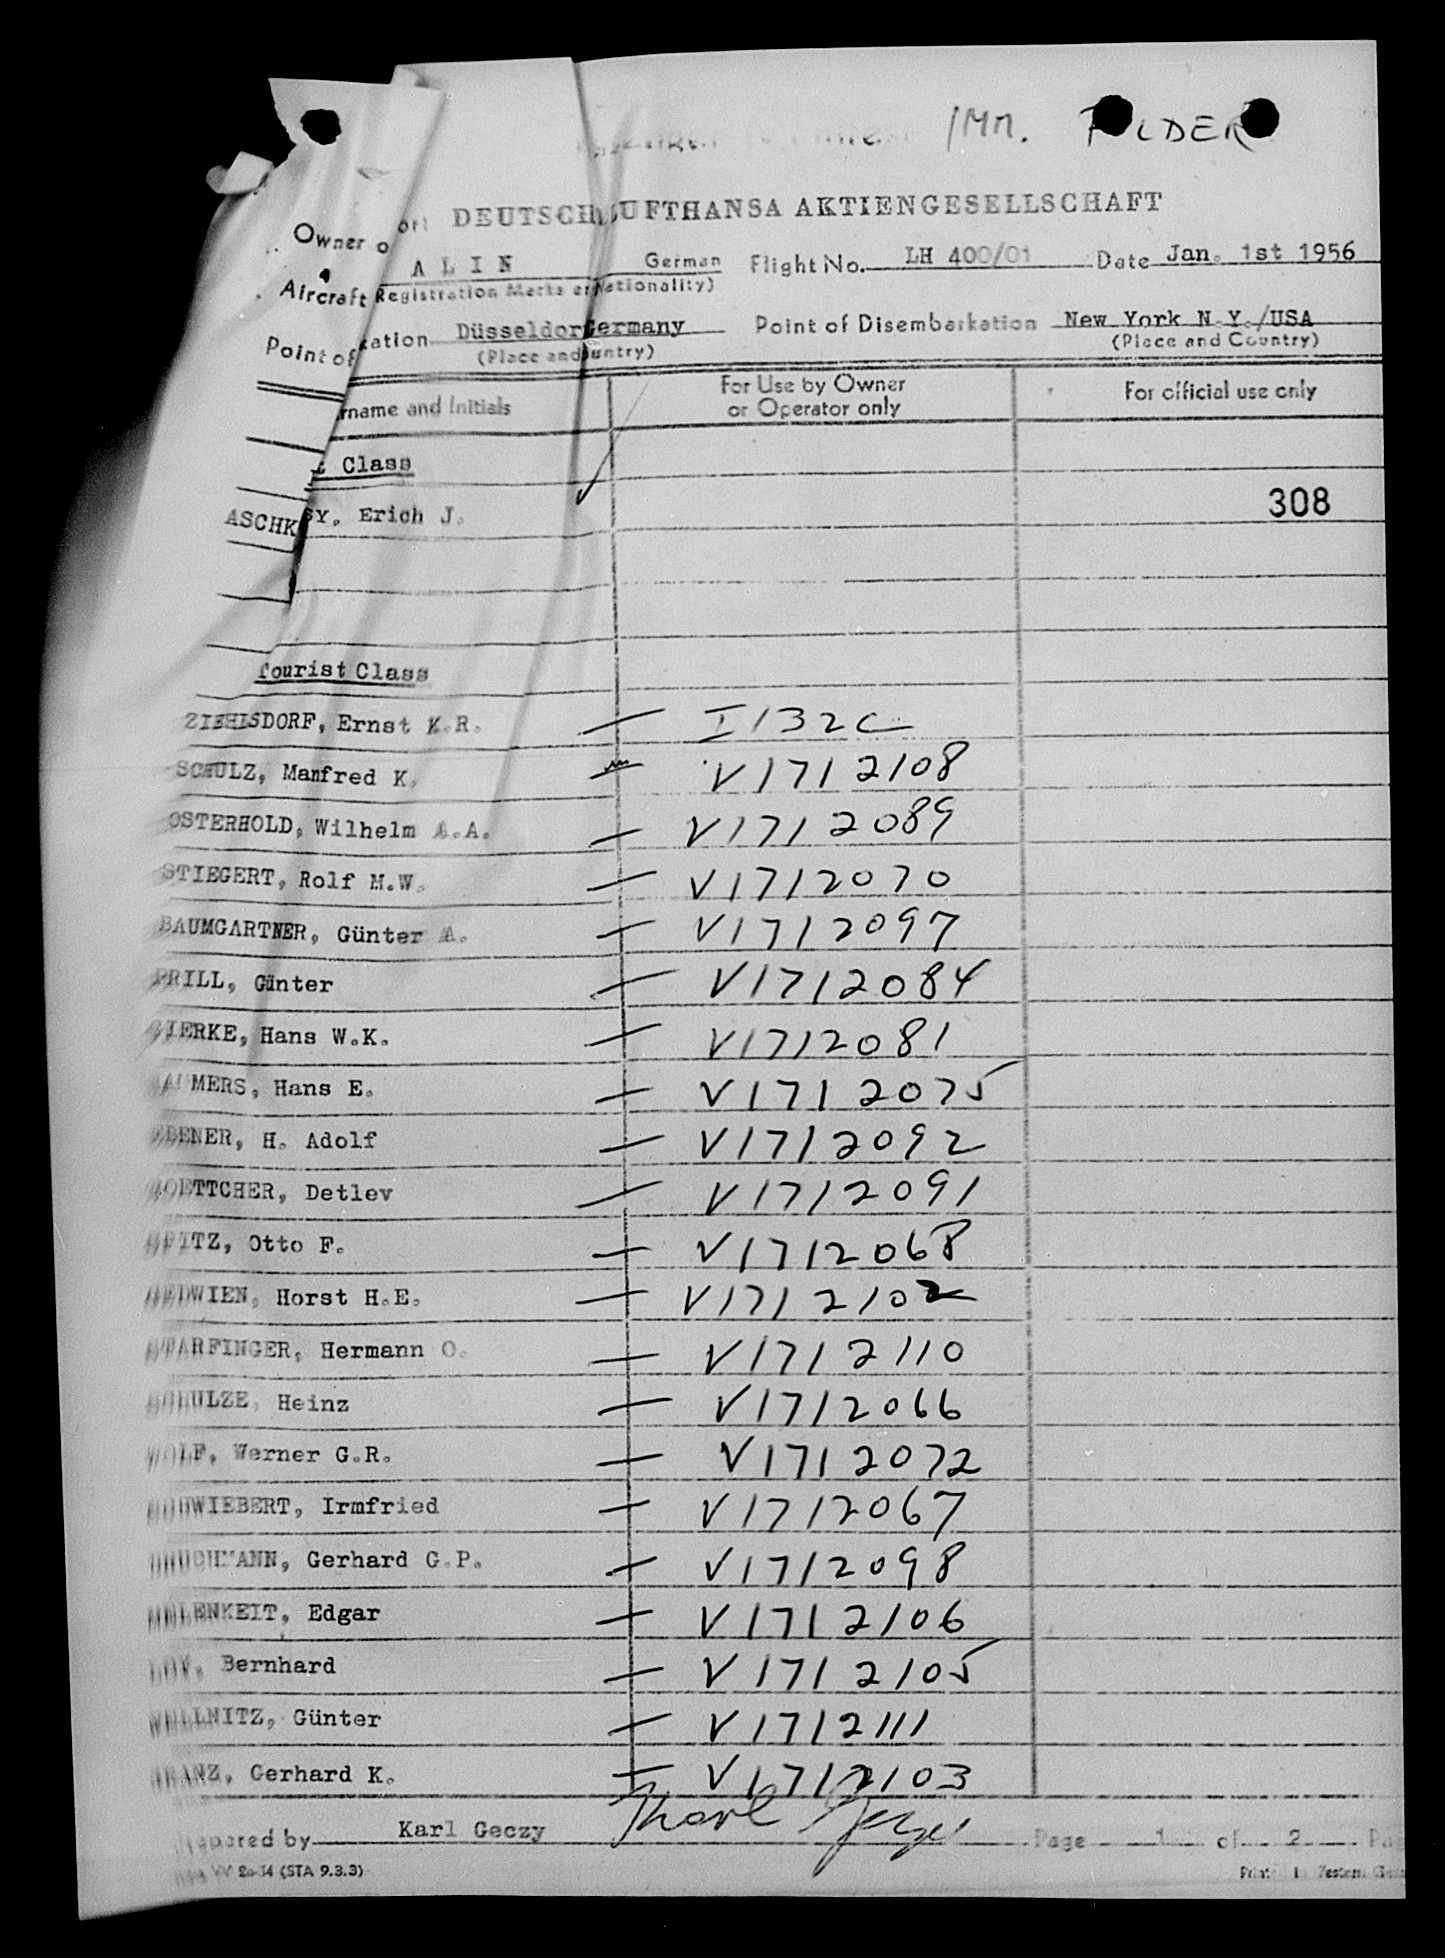 /Mn. FOLDER
Owner o or DEUTSCH LUFTHANSA AKTIENGESELLSCHAFT
A L I N German Flight No. LH 400/01 Date Jan. 1st 1956
Aircraft Registration Marks Nationality)
Point of kation Düsseldor Germany Point of Disembarkation New York N.Y./USA
(Place and untry) (Place and Country)
rname and Initials For Use by Owner or Operator only For official use only
t Class
ASCHK SY, Erich J. 308
Tourist Class
ZIEHLSDORF, Ernst K.R. — I132C
SCHULZ, Manfred K. — V1712108
OSTERHOLD, Wilhelm A.A. — V1712089
STIEGERT, Rolf M.W. — V1712070
BAUMGARTNER, Günter A. — V1712097
PRILL, Günter — V1712084
IERKE, Hans W.K. — V1712081
MERS, Hans E. — V1712075
EBENER, H. Adolf — V1712092
OETTCHER, Detlev — V1712091
ITZ, Otto F. — V1712068
EDWIEN, Horst H.E. — V1712102
TARFINGER, Hermann O. — V1712110
SCHULZE, Heinz — V1712066
WOLF, Werner G.R. — V1712072
HWIEBERT, Irmfried — V1712067
CHMANN, Gerhard G.P. — V1712098
LENKEIT, Edgar — V1712106
Bernhard — V1712105
LLNITZ, Günter — V1712111
RANZ, Gerhard K. — V1712103
Prepared by Karl Geczy Karl Geczy Page 1 of 2 Pa
20-14 (STA 9.3.3) Print in Western Ger